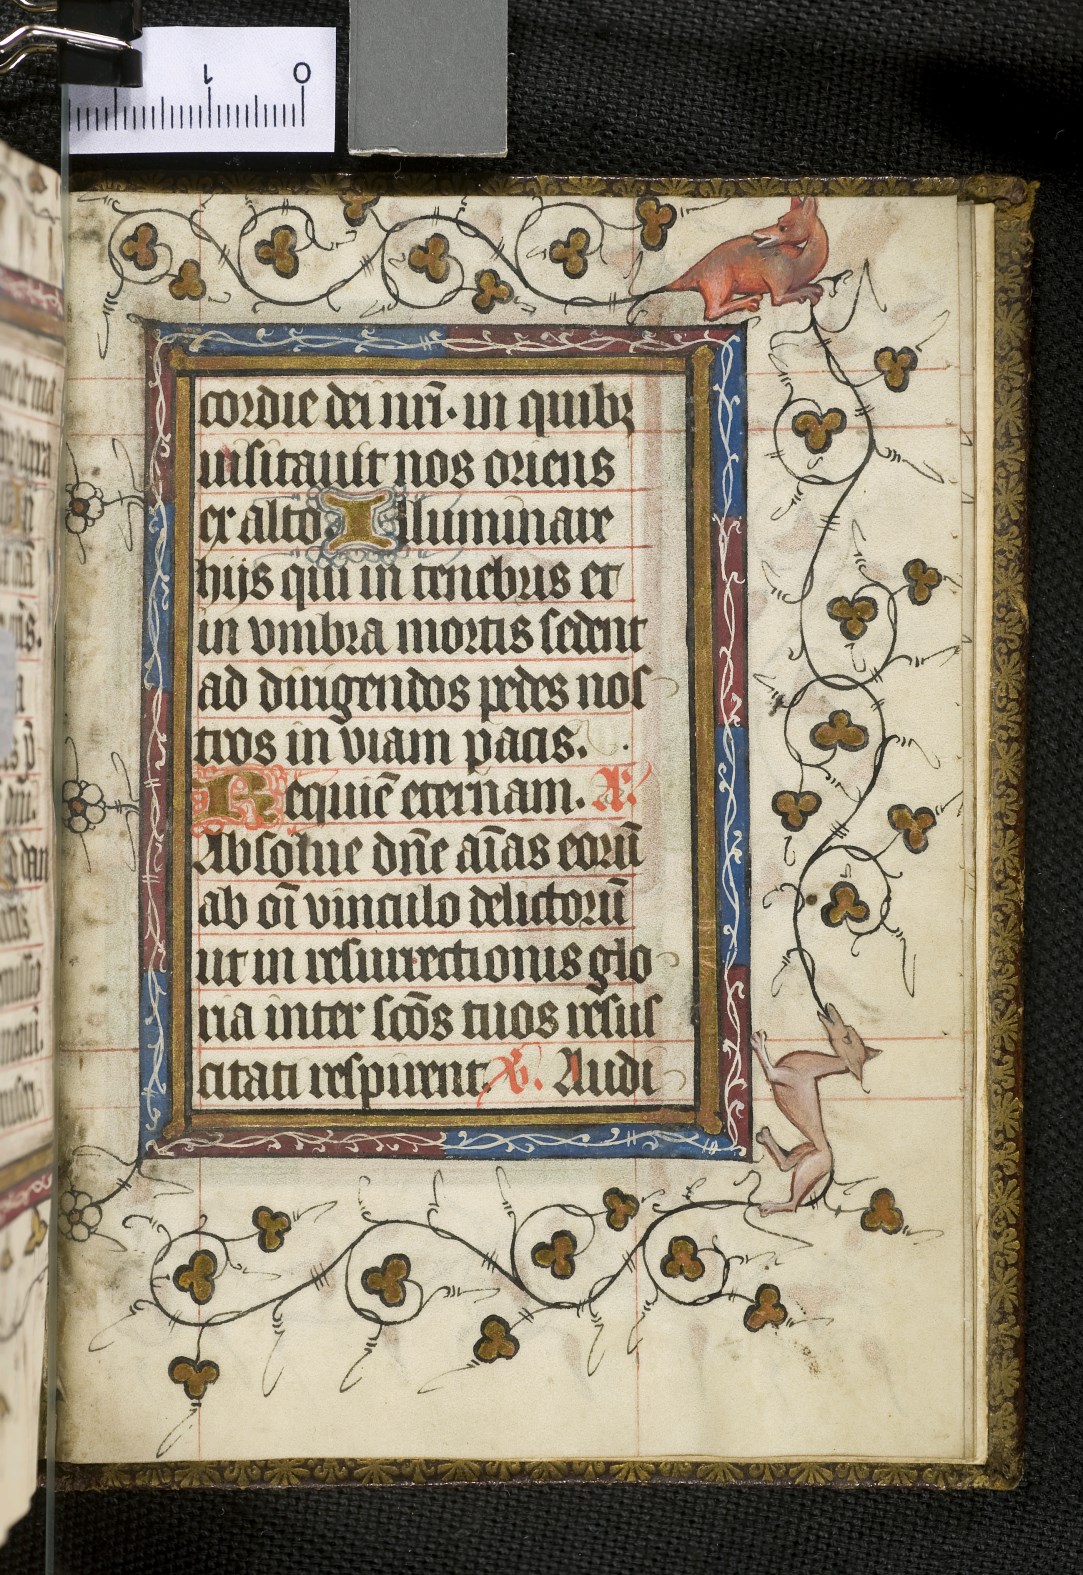 1 0
cordie dei nr̄i· in quibꝫ
uisitauit nos oriens
ex alto Illuminare
hijs qui in tenebris et
in vmbra mortis sedent
ad dirigendos pedes nos
tros in viam pacis.
Requiē eternam. A᷒:
Absolue dn̄e aīas eorū
ab oī vinculo delictorū
ut in resurrectionis glo
ria inter scōs tuos resus
citati respirent. V̷. Audi